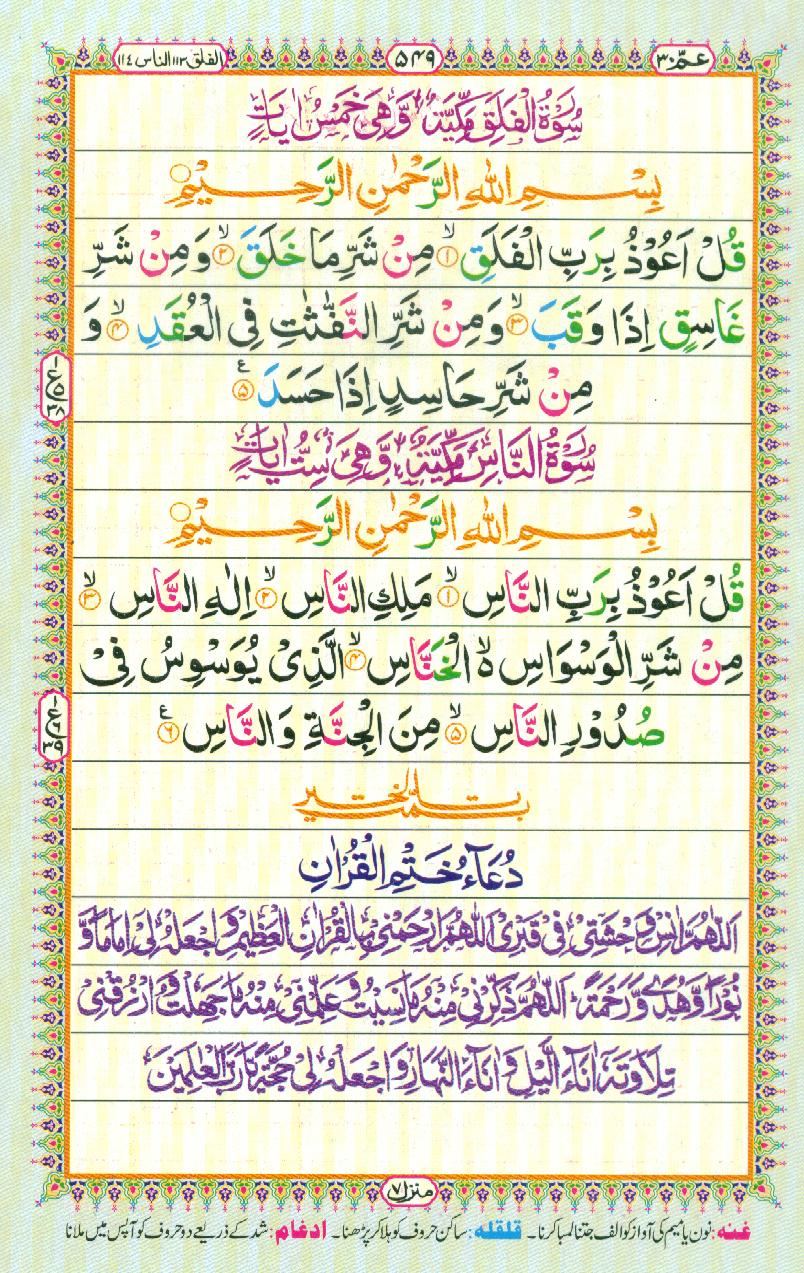 عمّ ٣٠
۵۴۹
الفلق ١١٣ الناس ١١٤
سُوْرَةُ الْفَلَقِ مَكِّيَّةٌ وَّهِيَ خَمْسُ اٰيَاتٍ
بِسْمِ اللّٰهِ الرَّحْمٰنِ الرَّحِيْمِ
قُلْ اَعُوْذُ بِرَبِّ الْفَلَقِ ۙ﴿۱﴾ مِنْ شَرِّ مَا خَلَقَ ۙ﴿۲﴾ وَمِنْ شَرِّ
غَاسِقٍ اِذَا وَقَبَ ۙ﴿۳﴾ وَمِنْ شَرِّ النَّفّٰثٰتِ فِی الْعُقَدِ ۙ﴿۴﴾ وَ
مِنْ شَرِّ حَاسِدٍ اِذَا حَسَدَ ﴿۵﴾ ع
سُوْرَةُ النَّاسِ مَكِّيَّةٌ وَّهِيَ سِتُّ اٰيَاتٍ
بِسْمِ اللّٰهِ الرَّحْمٰنِ الرَّحِيْمِ
قُلْ اَعُوْذُ بِرَبِّ النَّاسِ ۙ﴿۱﴾ مَلِكِ النَّاسِ ۙ﴿۲﴾ اِلٰهِ النَّاسِ ۙ﴿۳﴾
مِنْ شَرِّ الْوَسْوَاسِ ۙ۬ الْخَنَّاسِ ۙ﴿۴﴾ الَّذِیْ یُوَسْوِسُ فِیْ
صُدُوْرِ النَّاسِ ۙ﴿۵﴾ مِنَ الْجِنَّةِ وَالنَّاسِ ﴿۶﴾ ع
دُعَآءُ خَتْمِ الْقُرْاٰنِ
اَللّٰهُمَّ اٰنِسْ وَحْشَتِیْ فِیْ قَبْرِیْ اَللّٰهُمَّ ارْحَمْنِیْ بِالْقُرْاٰنِ الْعَظِیْمِ وَاجْعَلْهُ لِیْ اِمَامًا وَّ
نُوْرًا وَّهُدًی وَّرَحْمَةً اَللّٰهُمَّ ذَكِّرْنِیْ مِنْهُ مَا نَسِیْتُ وَعَلِّمْنِیْ مِنْهُ مَا جَهِلْتُ وَارْزُقْنِیْ
تِلَاوَتَهٗ اٰنَآءَ الَّیْلِ وَاٰنَآءَ النَّهَارِ وَاجْعَلْهُ لِیْ حُجَّةً یَّا رَبَّ الْعٰلَمِیْنَ
منزل ۷
غنه: نون یا میم کی آواز کو الف جتنا لمبا کرنا۔ قلقله: ساکن حروف کو ہلا کر پڑھنا۔ ادغام: شد کے ذریعے دو حروف کو آپس میں ملانا